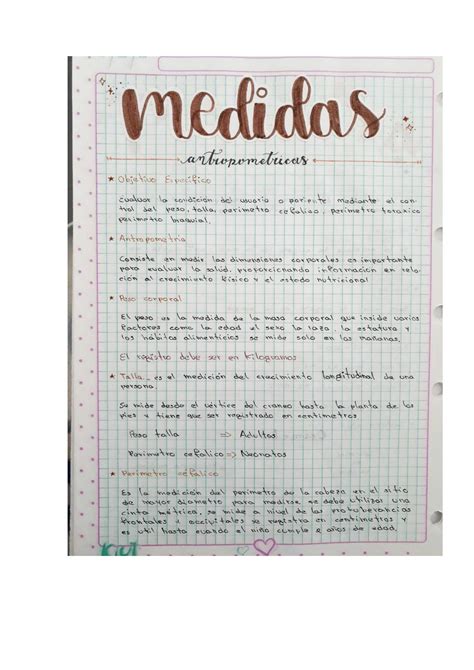 medidas
antropometricas
★ Objetivo Especifico
Evaluar la condicion del usuario o pariente mediante el con
trol del peso, talla, perimetro cefalico, perimetro toraxico
perimetro braquial.
★ Antropometria
Consiste en medir las dimensiones corporales es importante
para evaluar la salud, proporcionando informacion en rela-
ción al crecimiento fisico y el estado nutricional
★ Peso corporal
El peso es la medida de la masa corporal que inside varios
factores como la edad el sexo la raza, la estatura y
los hábitos alimenticios se mide solo en las mañanas.
El registro debe ser en Kilogramos
★ Talla.- es el medición del crecimiento longitudinal de una
persona.
Se mide desde el vértice del craneo hasta la planta de los
pies y tiene que ser registrado en centimetros
Peso talla ⇒ Adultos
Perimetro cefalico ⇒ Neonatos
★ Perimetro cefalico
Es la medición del perimetro de la cabeza en el sitio
de mayor diametro para medirse se debe utilizar una
cinta métrica, se mide a nivel de las protuberancias
frontales y occipitales se registra en centimetros y
es util hasta cuando el niño cumple 2 años de edad.